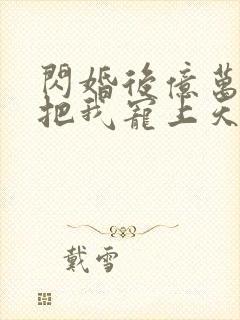 閃婚後億萬
把我寵上天
戴雪